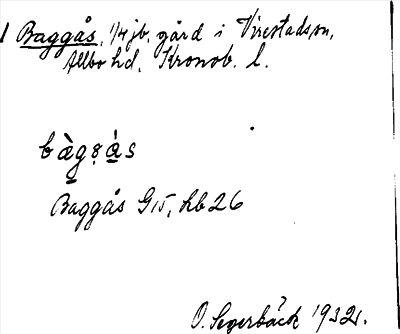 1 Baggås, 1/4 jb. gård i Virestads sn,
Allbo hd. Kronob. l.
bàgạ̊̀s
Baggås G 15, hb 26
O. Segerbäck 1932.